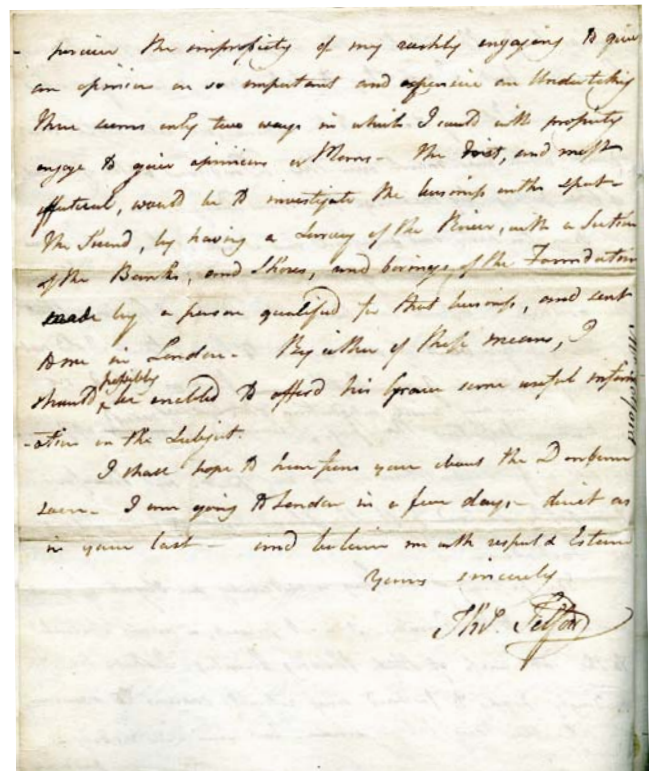 perceive the impropriety of my rashly engaging to give
an opinion on so important and expensive an Undertaking
there seems only two ways in which I could with propriety
engage to give opinions or Plans - the first, and most
effectual, would be to investigate the business on the spot -
the Second, by having a Survey of the River, with a Section
of the Banks, and Shores, and borings of the Foundation
made by a person qualified for that business, and sent
to me in London - By either of these means, I
should possibly be enabled to afford his Grace some useful inform
-ation on the Subject.
I shall hope to hear from you about the
soon - I am going to London in a few days - direct as
in your last - and believe me with respect & Esteem
Yours sincerely
Thos. Telford